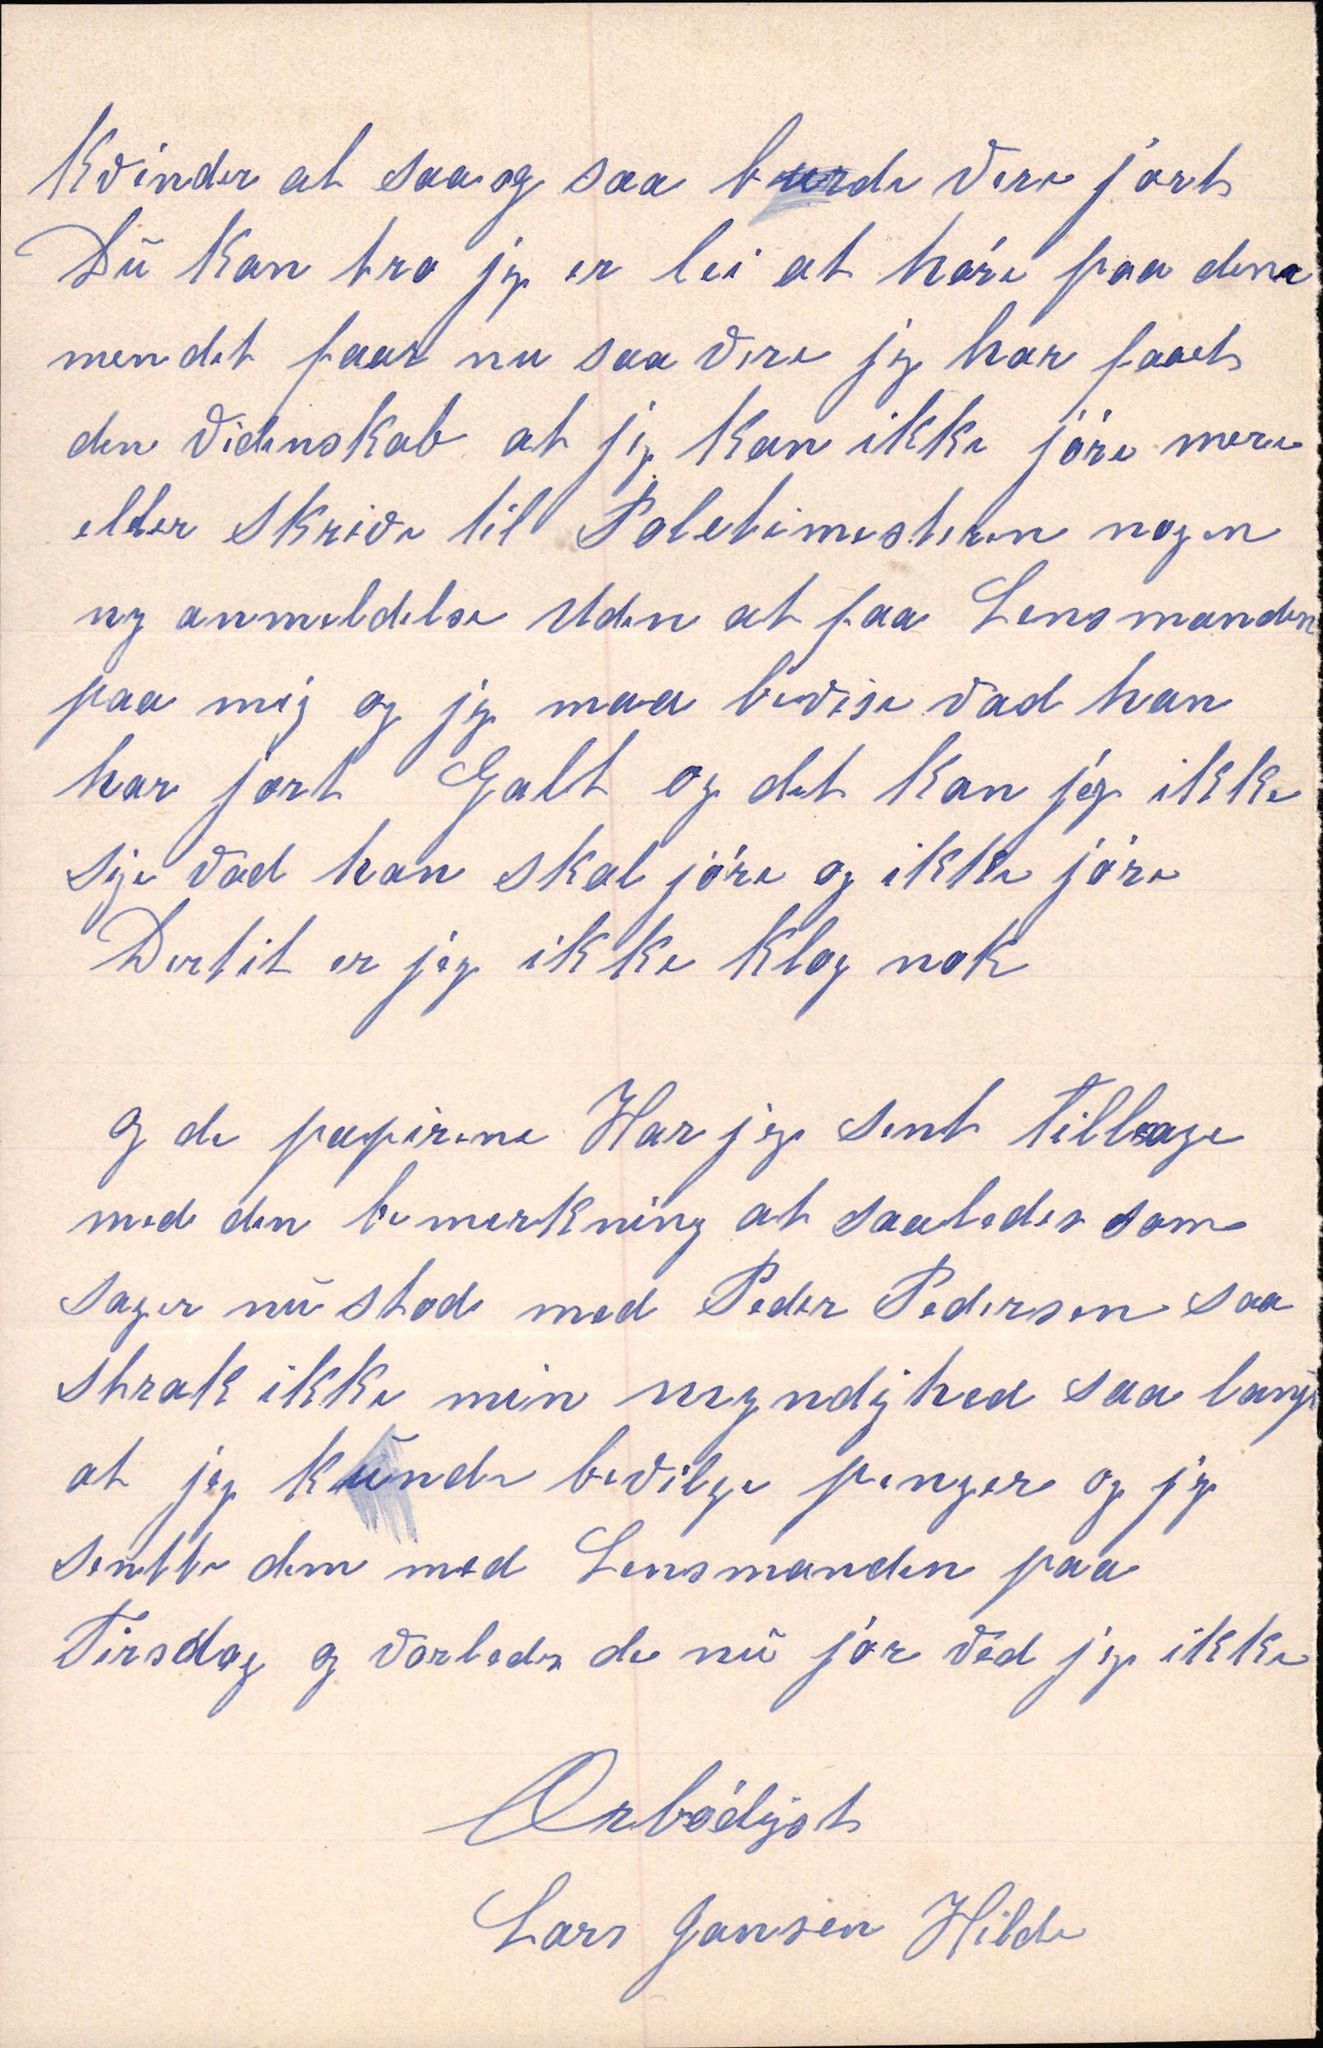 Kvinder at saa og saa burde vere jort
Dŭ Kan tro jeg er lei at höre paa dene
men det faar nu saa vere jeg har faaet
den videnskab at jeg Kan ikke jöre mere
eller Skrive til Poletimesteren nogen
ny anmeldelse Uden at faa Lensmanden
paa mig og jeg maa bevise vad han
har jort Galt og det Kan jeg ikke
sige vad han skal jöre og ikke jöre
Dertil er jeg ikke Klog nok
og de papirene Har jeg sent Tilbage
med den bemerkning at saaledes som
sager nŭ stode med Peder Pedersen saa
strak ikke min myndighed saa langt
at jeg Kŭnde bevilge penger og jeg
sentte dem med Lensmanden paa
Tirsdag og vorledes de nŭ jör ved jeg ikke
Ærbödigst
Lars Jansen Hilde